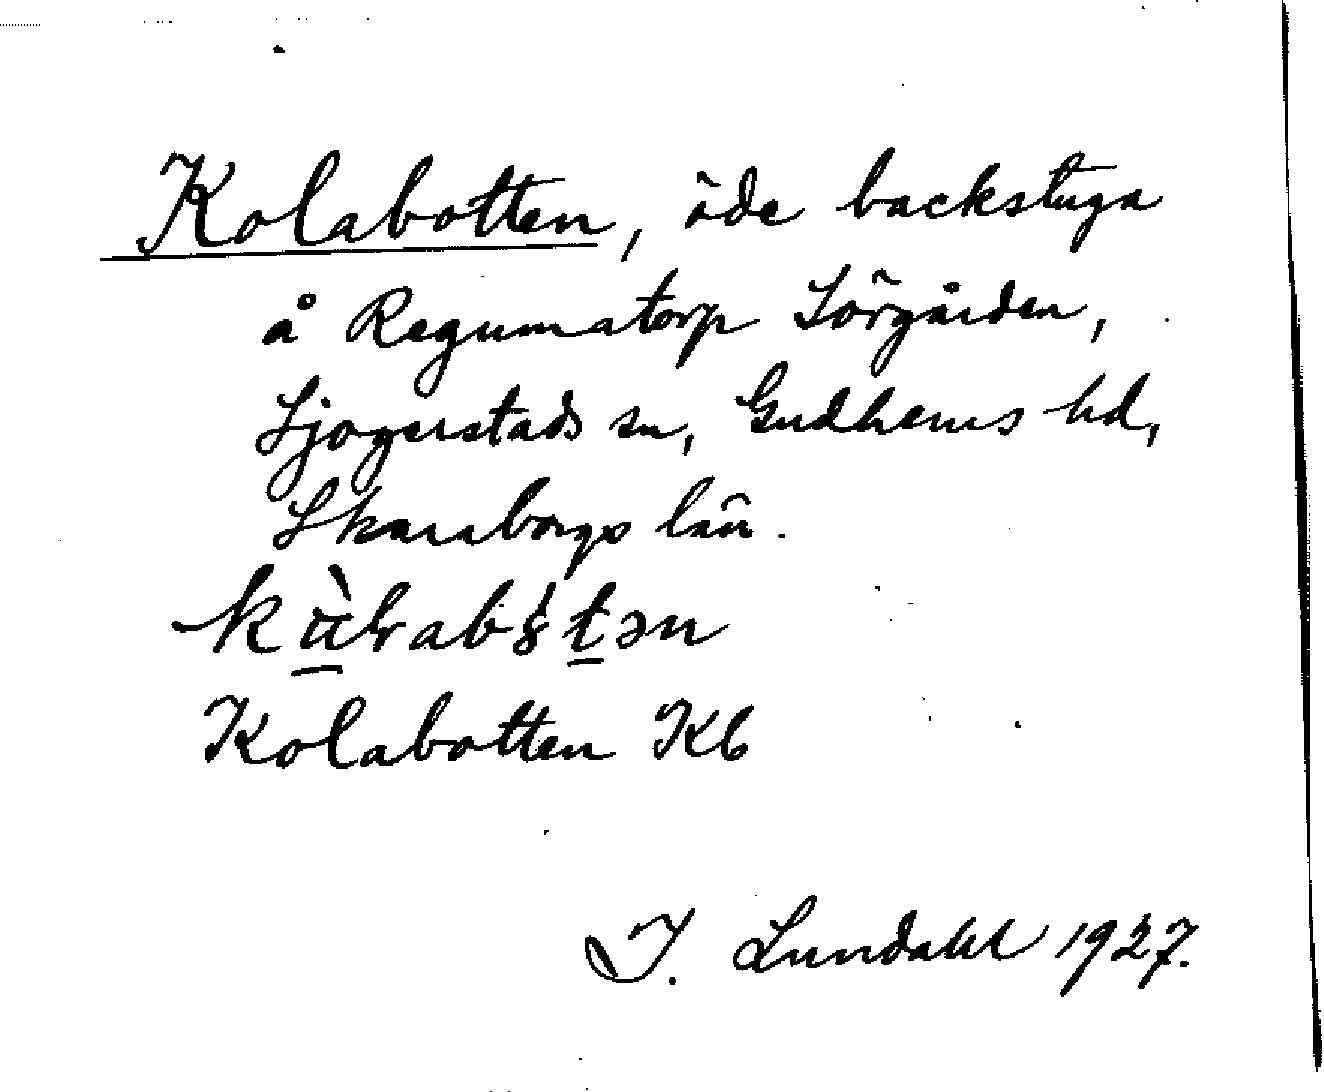 Kolabotten, öde backstuga
å Regumatorp Sörgården,
Sjogerstads sn, Gudhems hd,
Skaraborgs län.
Kolabotten Kb
I. Lundahl 1927.